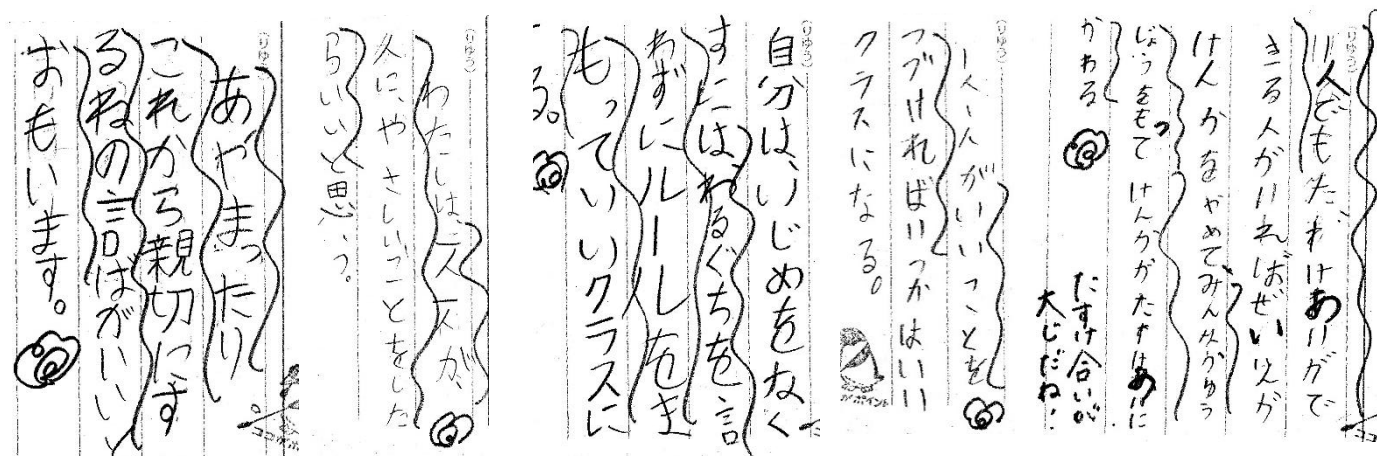 (りゆう)
1人でもたすけあいができ
きる人がいればぜいいんが
けんかをやめてみんながゆう
じょうをもってけんかがたすけあいに
かわる
たすけ合いが
大じだね!
一人一人がいいことを
つづければいつかはいい
クラスになる。
がポイント
(りゆう)
自分は、いじめをなく
すには、わるぐちを言
わずにルールをま
もっていいクラスに
る。
(りゆう)
わたしは、一人一人が、
人に、やさしいことをした
らいいと思う。
(りゆう)
あやまったり
これから親切にす
るねの言ばがいいと
おもいます。